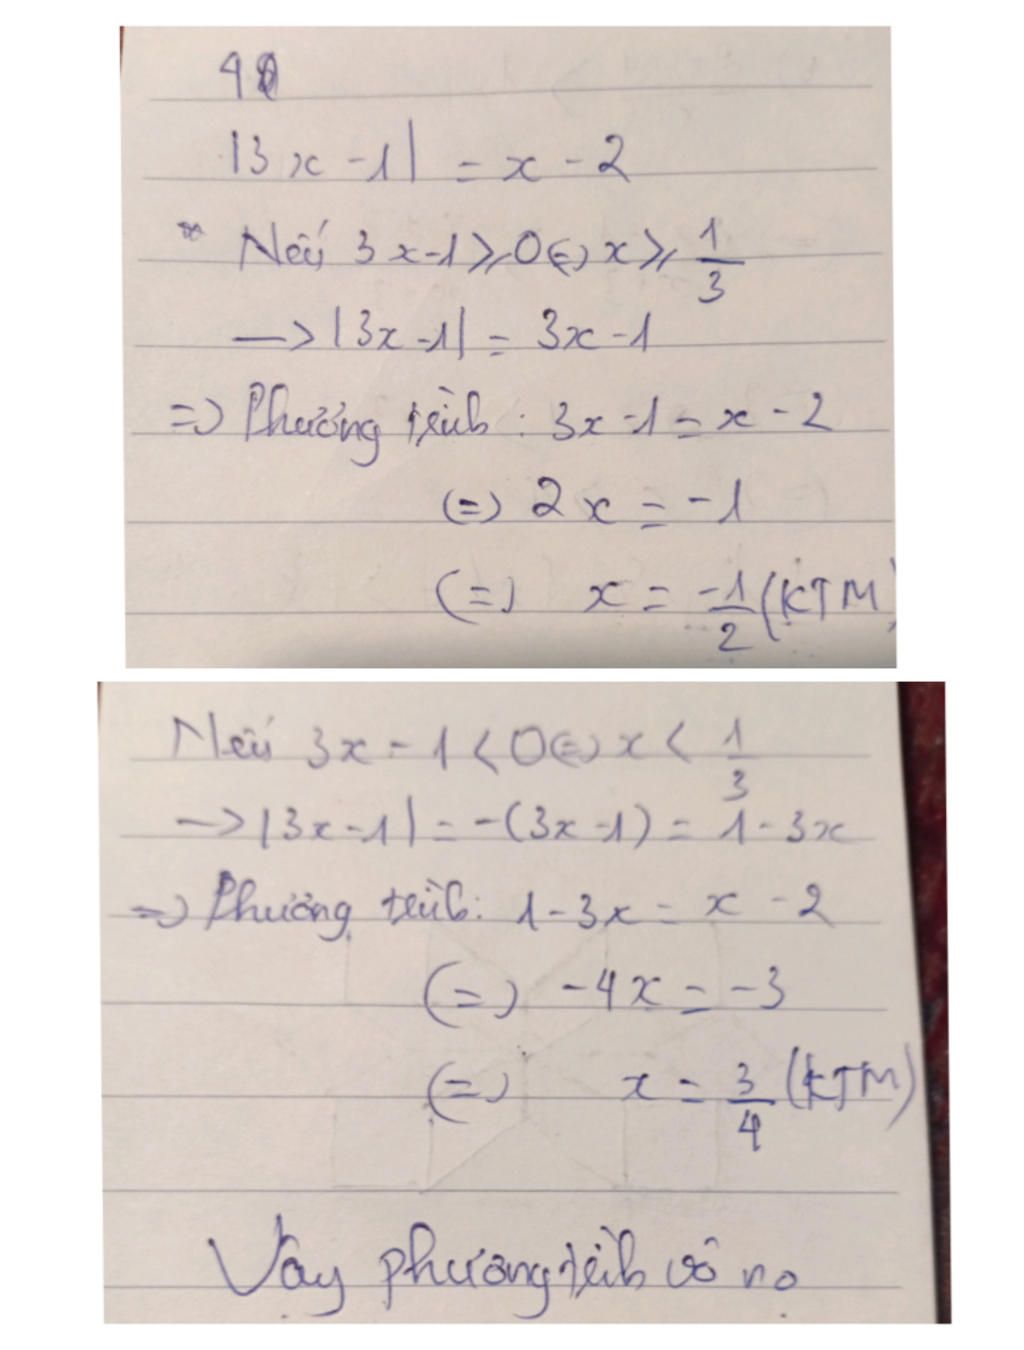 |3x - 1| = x - 2
* Nếu 3x - 1 ≥ 0 (=) x ≥ 1/3
—> |3x - 1| = 3x - 1
=> Phương trình : 3x - 1 = x - 2
(=) 2x = -1
(=) x = -1/2 (KTM)
Nếu 3x - 1 < 0 (=) x < 1/3
—> |3x - 1| = -(3x - 1) = 1 - 3x
=> Phương trình : 1 - 3x = x - 2
(=) -4x = -3
(=) x = 3/4 (KTM)
Vậy phương trình vô no